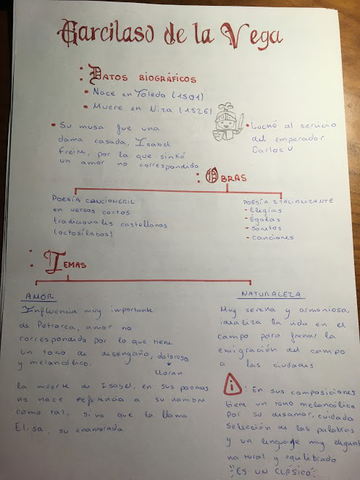 Garcilaso de la Vega
DATOS BIOGRÁFICOS
Nace en Toledo (1501)
Muere en Niza (1526)
Su musa fue una
dama casada, Isabel
Freire, por la que sintió
un amor no correspondido
Luchó al servicio
del emperador
Carlos V
OBRAS
POESÍA CANCIONERIL
en versos cortos
tradicionales castellanos
(octosílabos)
POESÍA ITALIANIZANTE
- Elegías
- Églogas
- Sonetos
- Canciones
TEMAS
AMOR
Influencia muy importante
de Petrarca, amor no
correspondido por lo que tiene
un tono de desengaño, doloroso
y melancólico.
lloran
la muerte de Isabel, en sus poemas
no hace referencia a su nombre
como tal, sino que la llama
Elisa, su enamorada
NATURALEZA
Muy serena y armoniosa,
idealiza la vida en el
campo para frenar la
emigración del campo
a las ciudades
En sus composiciones
tiene un tono melancólico
Por su desamor, cuidada
selección de las palabras
y un lenguaje muy elegante
natural y equilibrado
¡ES UN CLÁSICO!